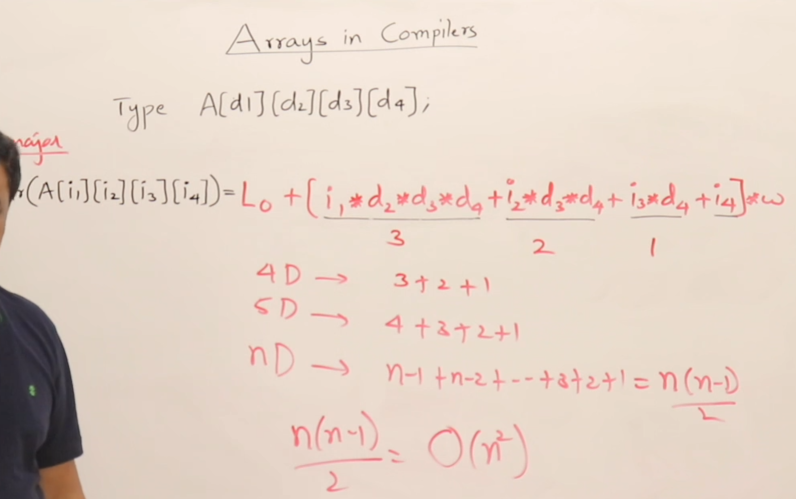 Arrays in Compilers
Type A[d1][d2][d3][d4];
major
r(A[i1][i2][i3][i4])=L0 + [i1*d2*d3*d4+i2*d3*d4+i3*d4+i4]*w
3 2 1
4D → 3+2+1
5D → 4+3+2+1
nD → n-1+n-2+--+3+2+1= n(n-1)/2
n(n-1)/2 = O(n²)